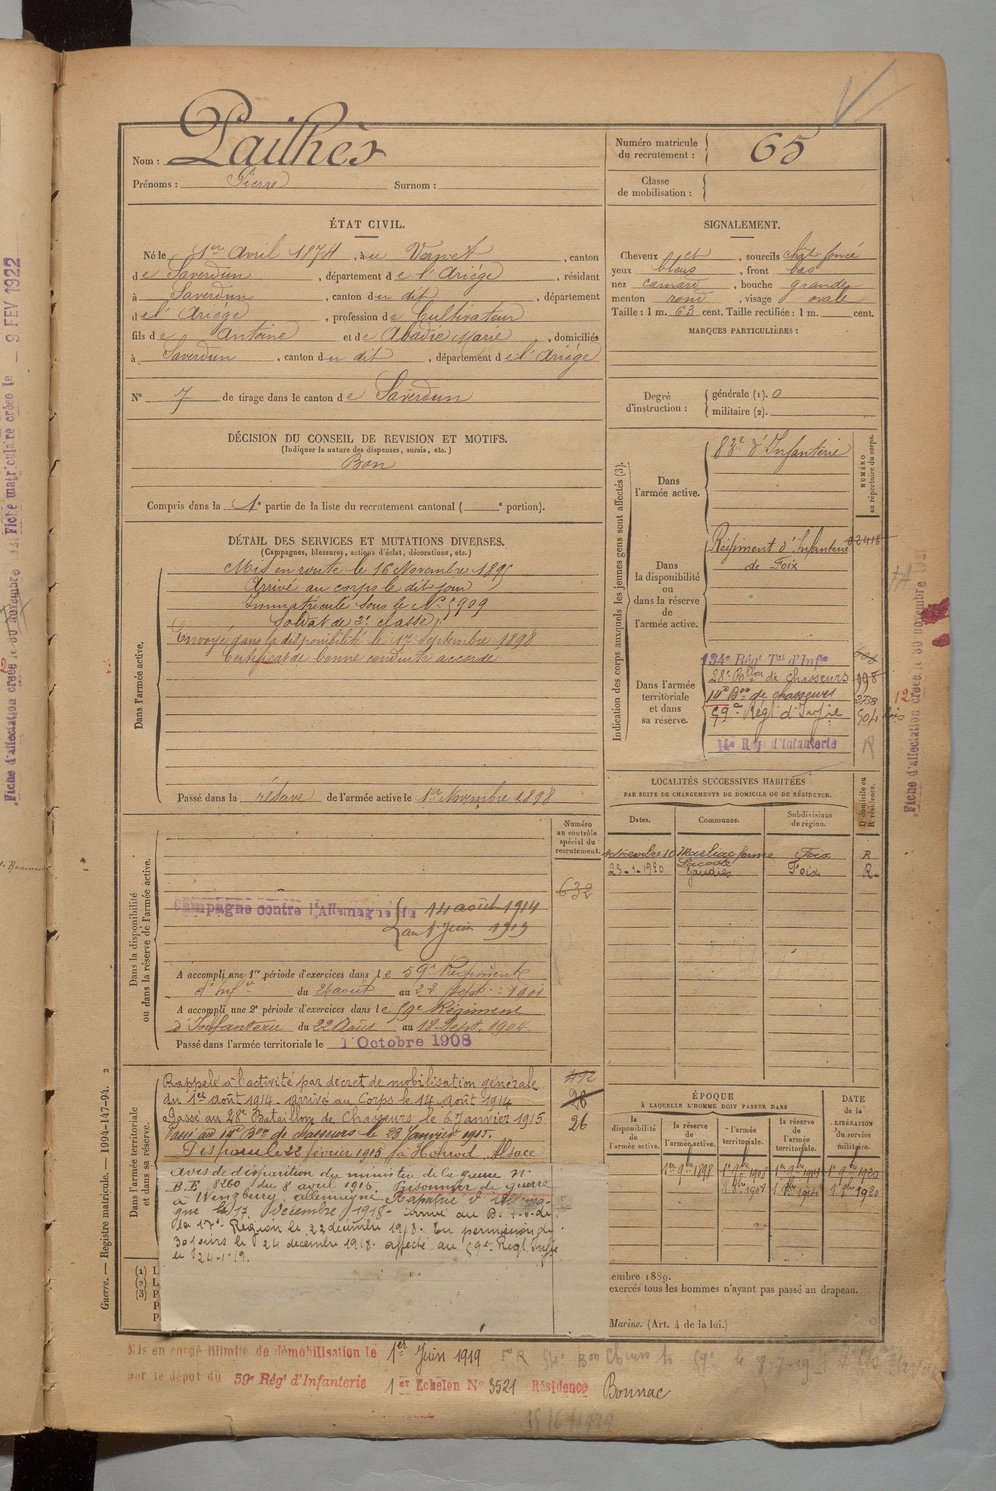 Nom : Pailhès
Prénoms : Pierre Surnom :
Numéro matricule du recrutement : 65
Classe de mobilisation :
ÉTAT CIVIL.
Né le 1er Avril 1874, à Vernet, canton
de Saverdun, département de l'Ariége, résidant
à Saverdun, canton du dit, département
de l'Ariége, profession de Cultivateur
fils de Antoine et de Abadie Marie, domiciliés
à Saverdun, canton du dit, département de l'Ariége
N° 7 de tirage dans le canton de Saverdun
SIGNALEMENT.
Cheveux et, sourcils chat. foncé
yeux bleus, front bas
nez camard, bouche grande
menton rond, visage ovale
Taille : 1 m. 63 cent. Taille rectifiée : 1 m. cent.
MARQUES PARTICULIÈRES :
Degré d'instruction : générale (1). 0
militaire (2).
DÉCISION DU CONSEIL DE REVISION ET MOTIFS.
(Indiquer la nature des dispenses, sursis, etc.)
Bon
Compris dans la 1e partie de la liste du recrutement cantonal ( e portion).
DÉTAIL DES SERVICES ET MUTATIONS DIVERSES.
(Campagnes, blessures, actions d'éclat, décorations, etc.)
Dans l'armée active.
Mis en route le 16 Novembre 1895
Arrivé au corps le dit jour
Immatriculé sous le N° 5909
Soldat de 2e classe
Envoyé dans la disponibilité le 17 Septembre 1898
Certificat de bonne conduite accordé
Passé dans la réserve de l'armée active le 1er Novembre 1898
Indication des corps auxquels les jeunes gens sont affectés (3).
NUMÉRO au répertoire du corps.
Dans l'armée active.
83e d'Infanterie
Dans la disponibilité ou dans la réserve de l'armée active.
Régiment d'Infanterie
de Foix
Dans l'armée territoriale et dans sa réserve.
134e Rég' T'al d'Inf'ie
28e B'lon de Chasseurs 998
14e B'on de chasseurs 258
59e Rég' d'Inf'ie 504 bis
14e Rég' d'Infanterie R
12
LOCALITÉS SUCCESSIVES HABITÉES
PAR SUITE DE CHANGEMENTS DE DOMICILE OU DE RÉSIDENCE.
Dates. Communes. Subdivisions de région. D. domicile ou R. résidence.
Foix R
25-1-1920 Gaudiès Foix R
Dans la disponibilité ou dans la réserve de l'armée active.
Numéro au contrôle spécial du recrutement.
632
Campagne contre l'Allemagne du 14 août 1914
au 1er Juin 1919
A accompli une 1re période d'exercices dans le 59e Régiment
d'Inf'ie du 26 août au 22 Sept. 1901
A accompli une 2e période d'exercices dans le 59e Régiment
d'Infanterie du 22 Août au 18 Sept. 1904
Passé dans l'armée territoriale le 1 Octobre 1908
Dans l'armée territoriale et dans sa réserve.
Rappelé à l'activité par décret de mobilisation générale
du 1er août 1914. Arrivé au Corps le 14 Août 1914
Passé au 28e Bataillon de Chasseurs le 6 Janvier 1915
Passé au 14e B'on de chasseurs le 23 Janvier 1915.
Disparu le 22 février 1915 à Hohrod, Alsace
492
28
26
Avis de disparition du ministre de la guerre N°
B.F. 8260 du 8 avril 1915. Prisonnier de guerre
à Winzburg, allemagne. Rapatrié d'Allema-
gne le 17 Décembre 1918. Arrivé au
la 17e Région le 22 décembre 1918. En permission de
30 jours le 24 décembre 1918. affecté au 59e Rég' Inf'ie
le 24-1-19.
ÉPOQUE
À LAQUELLE L'HOMME DOIT PASSER DANS
la disponibilité de l'armée active. la réserve de l'armée active. l'armée territoriale. la réserve de l'armée territoriale. DATE de la LIBÉRATION du service militaire.
1er 9bre 1898 1er 9bre 1908 1er 9bre 1914 1er 9bre 1920
1er 8bre 1908 1er 8bre 1914 1er 8bre 1920
(1)
(2)
(3)
embre 1889.
exercés tous les hommes n'ayant pas passé au drapeau.
Marine. (Art. 4 de la loi.)
Mis en congé illimité de démobilisation le 1er Juin 1919
par le dépôt du 59e Rég' d'Infanterie 1er Echelon N° 3521 Résidence Bonnac
Guerre. — Registre matricule. — 1994-147-94. 2
Fiche matriculaire créée le — 9 FEV 1922
Fiche d'affectation créée le 30 novembre
Fiche d'affectation créée le 30 novembre 1921